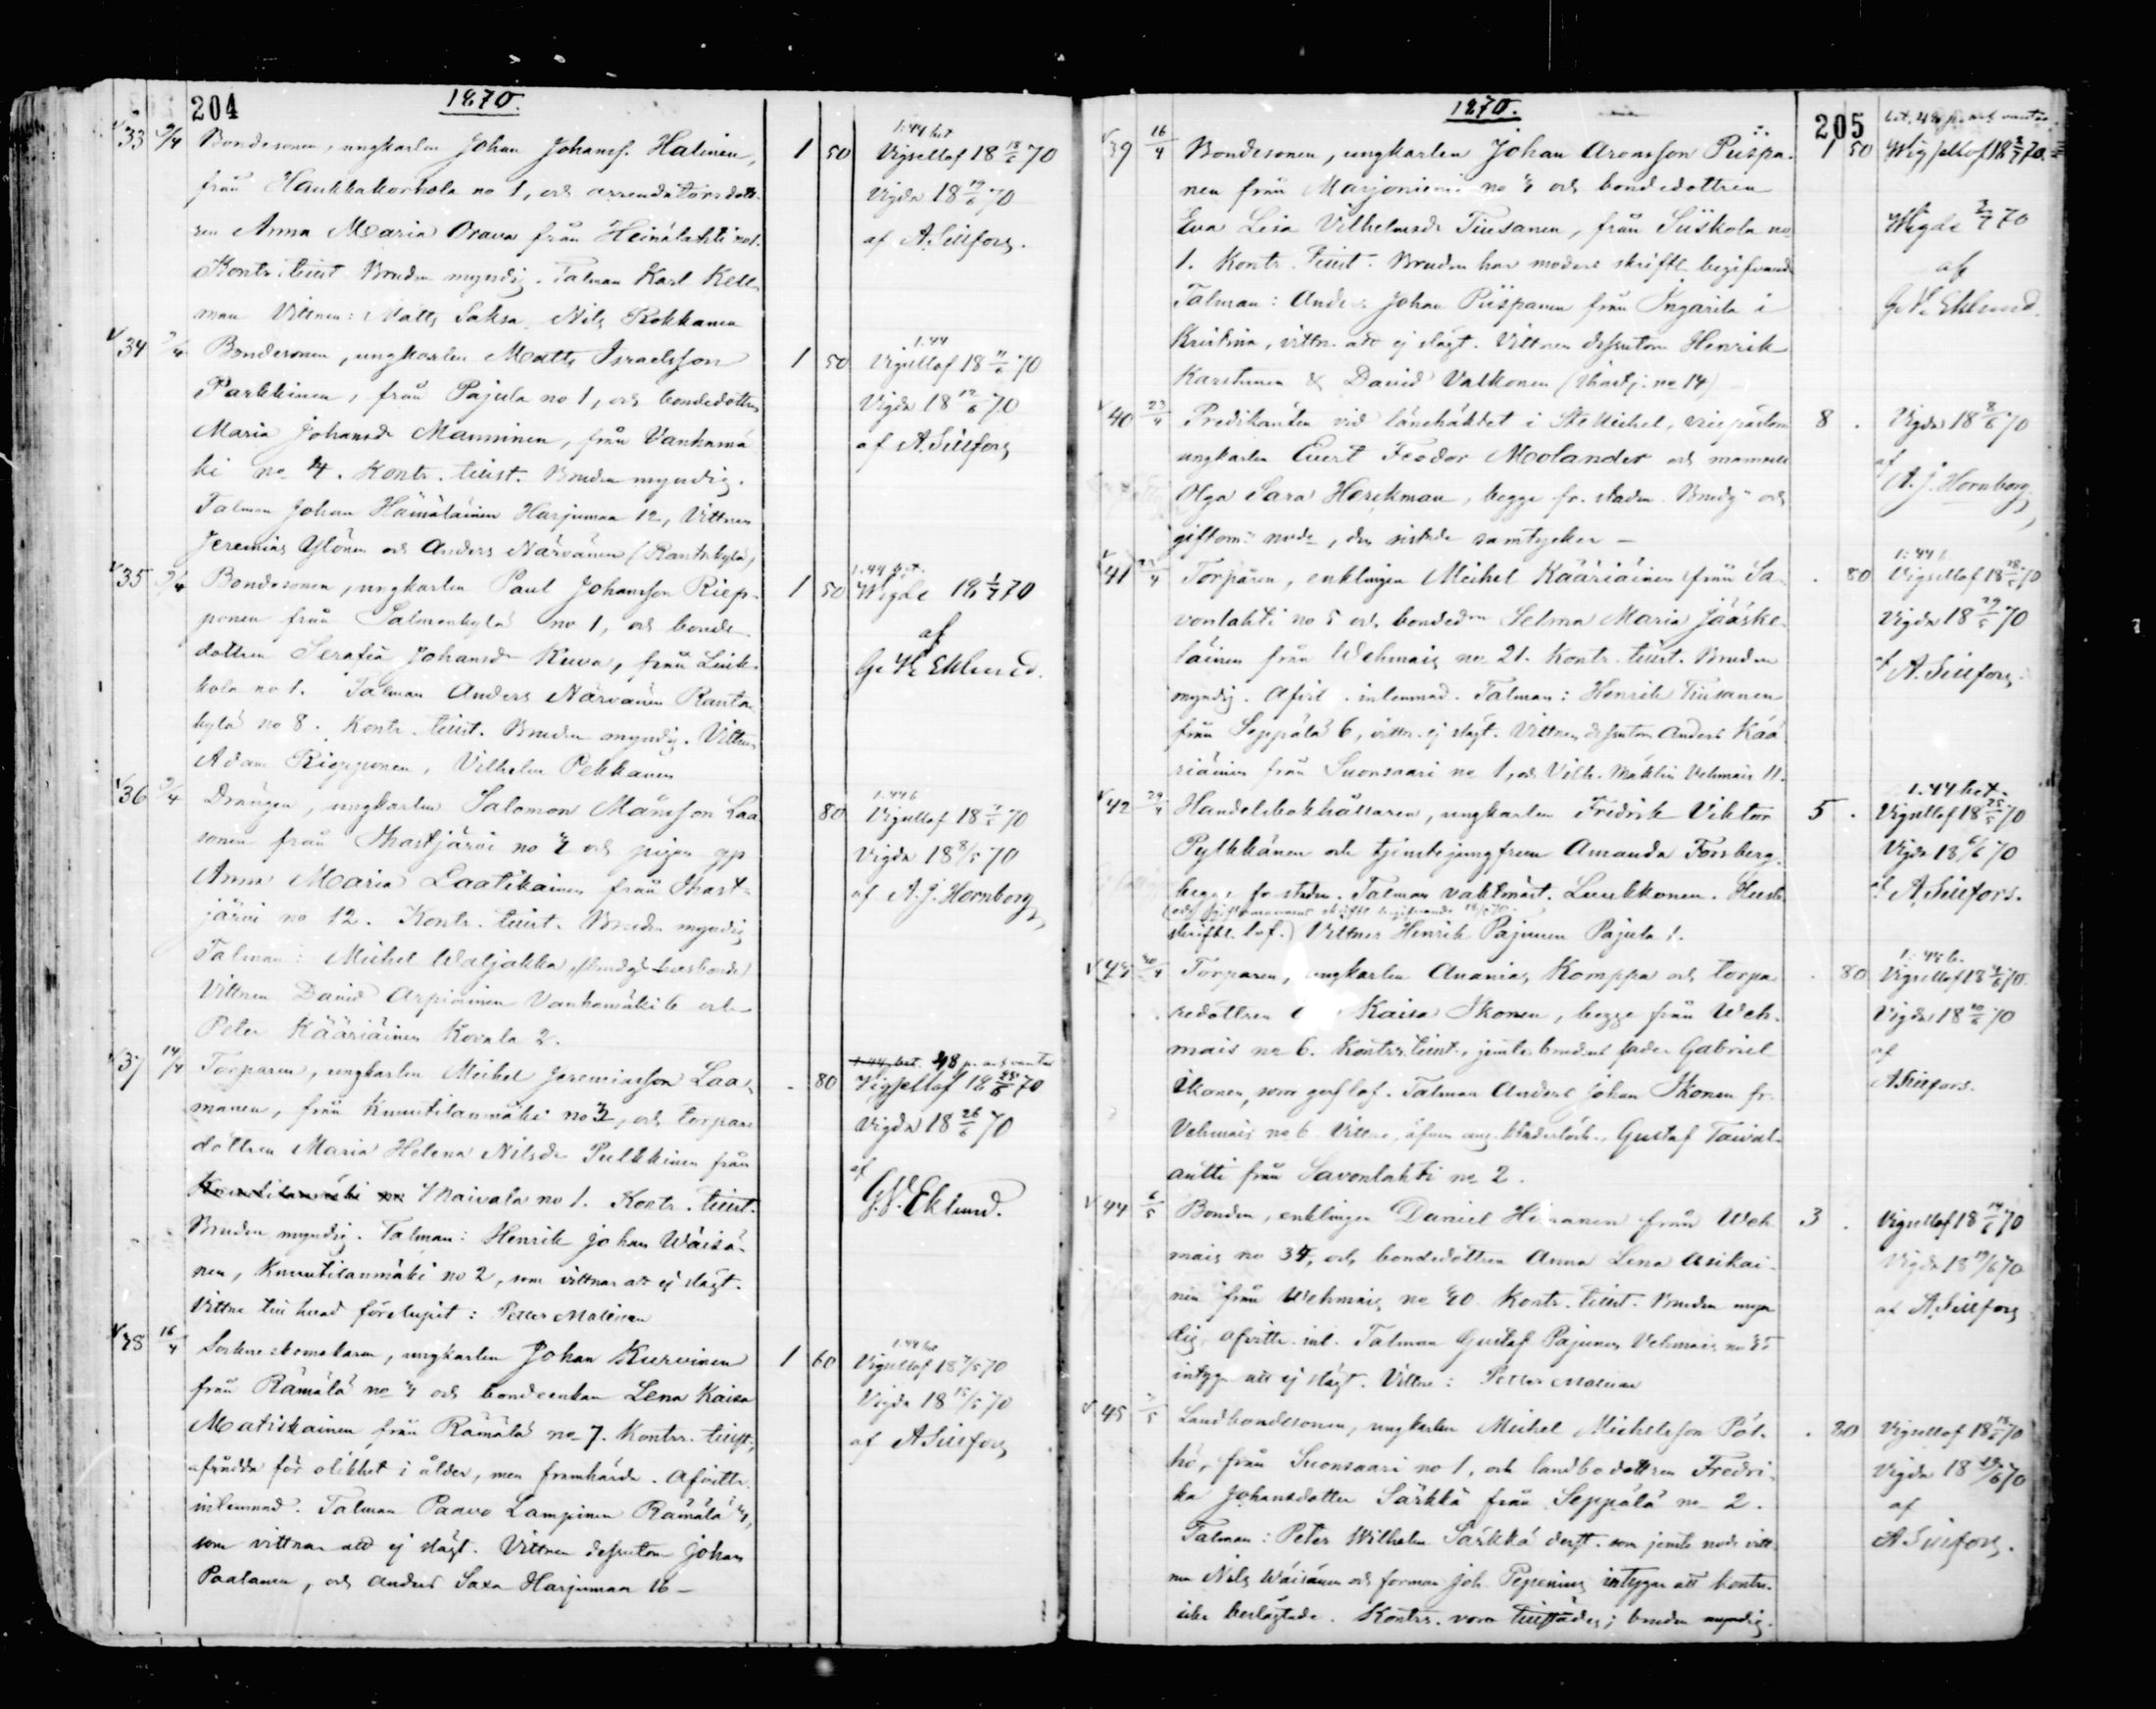 204
1870.
33 9/4 Bondesonen, ungkarlen Johan Johanss. Halinen, 1 50
från Haukkakorhola no 1, och arrendatorsdott-
ren Anna Maria Orava från Heinälahti no 1.
Kontr. tillst. Bruden myndig. Talman Karl Kell-
man Vittnen: Matts Saksa, Nils Kokkanen
1.44 bet
Vigsellof 18 18/6 70
Vigda 18 19/6 70
af A. Sillfors.
34 9/4 Bondesonen, ungkarlen Matts Israelsson 1 50
Parkkinen, från Pajula no 1, och bondedottren
Maria Johansdr Manninen, från Vanhamä-
ki no 4. Kontr. tillst. Bruden myndig.
Talman Johan Hämäläinen Harjumaa 12, Vittnen
Jeremias Ylönen och Anders Närvänen (Rantakylä)
1.44
Vigsellof 18 11/6 70
Vigda 18 12/6 70
af A. Sillfors
35 9/4 Bondesonen, ungkarlen Paul Johansson Riep- 1 50
ponen från Salmenkylä no 1, och bonde-
dottren Serafia Johansdr Kuva, från Liuk-
kola no 1. Talman Anders Närvänen Ranta-
kylä no 8. Kontr. tillst. Bruden myndig. Vittnen
Adam Riepponen, Vilhelm Pekkanen
1.44 bet.
Vigde 18 1/7 70
af
G. V. Eklund.
36 9/4 Drängen, ungkarlen Salomon Månsson Laa- 80
sonen från Ihastjärvi no 4 och pigan
Anna Maria Laatikainen från Ihast-
järvi no 12. Kontr. tillst. Bruden myndig
Talman: Michel Waljakka, (brudgs husbonde)
Vittnen David Arpiainen Vanhamäki 6 och
Peter Kääriäinen Kovala 2.
1.44 b
Vigsellof 18 7/5 70
Vigda 18 8/5 70
af A. J. Hornborg
37 14/4 Torparen, ungkarlen Michel Jeremiasson Laa- . 80
manen, från Knuutilanmäki no 2, och torpare-
dottren Maria Helena Nilsdr Pulkkinen från
Knuutilanmäki no Ihaivala no 1. Kontr. tillst.
Bruden myndig. Talman: Henrik Johan Wäisä-
nen, Knuutilanmäki no 2, som vittnar att ej slägt.
Vittne till hvad förelupit: Petter Malinen
1.44 bet. 48 p.
Vigsellof 18 25/6 70
Vigda 18 26/6 70
af
G. V. Eklund.
38 16/4 Sockneskomakaren, ungkarlen Johan Kurvinen 1 60
från Rämälä no 4 och bondeenkan Lena Kaisa
Matiskainen från Rämälä no 7. Kontr. tillst.,
afrådda för olikhet i ålder, men framhärda. Afvittr.
inlemnad. Talman Paavo Lampinen Rämälä 4,
som vittnar att ej slägt. Vittnen dessutom Johan
Paalanen, och Anders Saxa Harjumaa 16 -
1.44 be
Vigsellof 18 7/5 70
Vigda 18 15/5 70
af A. Sillfors
1870.
205
39 16/4 Bondesonen, ungkarlen Johan Aronsson Piispa- 1 50
nen från Marjoniemi no 4 och bondedottren
Eva Lisa Vilhelmsdr Tiusanen, från Siiskola no
1. Kontr. tillst. Bruden har moders skriftl. begifvande
Talman: Anders Johan Piispanen från Ingarila i
Kristina, vittn. att ej slägt. Vittnen dessutom Henrik
Karstunen & David Valkonen (Ihastj. no 14)
Vigsellof 18 2/7 70
Vigde 3/7 70
af
G. V. Eklund.
40 23/4 Predikanten vid länehäktet i St Michel, vicepastorn 8 .
ungkarlen Evert Feodor Molander och mamsell
Olga Sara Herckman, begge fr. staden. Brudg. och
giftom. närv., den sistnde samtycker -
Vigda 18 8/6 70
af
A. J. Hornborg
41 23/4 Torparen, enklingen Michel Kääriäinen från Sa- . 80
vonlahti no 5 och bondedn Selma Maria Jääske-
läinen från Wehmais no 21. Kontr. tillst. Bruden
myndig. Afvit. inlemnad. Talman: Henrik Tiusanen
från Seppälä 6, vittn. ej slägt. Vittnen dessutom Anders Kää-
riäinen från Suonsaari no 1, och Vilh. Mäklin Vehmais 11.
1.44 b
Vigsellof 18 28/5 70
Vigda 18 29/5 70
af A. Sillfors
42 29/4 Handelsbokhållaren, ungkarlen Fredrik Viktor 5 .
Pylkkänen och tjenstejungfrun Amanda Forsberg,
begge fr staden. Talman vaktmäst. Luukkonen.
skriftl. lof.) Vittnes Henrik Pajunen Pajula 1.
1.44 bet.
Vigsellof 18 25/5 70
Vigda 18 6/6 70
af A. Sillfors.
43 30/4 Torparen, ungkarlen Ananias Komppa och torpa- . 80
redottren Kaisa Ikonen, begge från Weh-
mais no 6. Kontr. tillst., jemte brudens fader Gabriel
Ikonen, som gaf lof. Talman Anders Johan Ikonen fr.
Vehmais no 6. Vittne, Gustaf Taival-
antti från Savonlahti no 2.
1.44 b.
Vigsellof 18 4/6 70
Vigda 18 10/6 70
af
A. Sillfors.
44 6/5 Bonden, enklingen Daniel Himanen från Weh- 3 .
mais no 34, och bondedottren Anna Lena Asikai-
nen från Wehmais no 40. Kontr. tillst. Bruden myn-
dig, afvittr. inl. Talman Gustaf Pajunen Vehmais no 35
intygar att ej slägt. Vittne: Petter Malinen
Vigsellof 18 14/6 70
Vigda 18 19/6 70
af A. Sillfors
45 7/5 Landbondesonen, ungkarlen Michel Michelsson Pöl- . 80
hö, från Suonsaari no 1, och landbodottren Fredri-
ka Johansdotter Särkkä från Seppälä no 2.
Talman: Peter Wilhelm Särkkä derst. som jemte vitt-
nen Nils Wäisänen och forman Joh. Pepenius intygar att kontr.
icke beslägtade. Kontr. voro tillstädes; bruden myndig.
Vigsellof 18 18/6 70
Vigda 18 19/6 70
af
A. Sillfors.